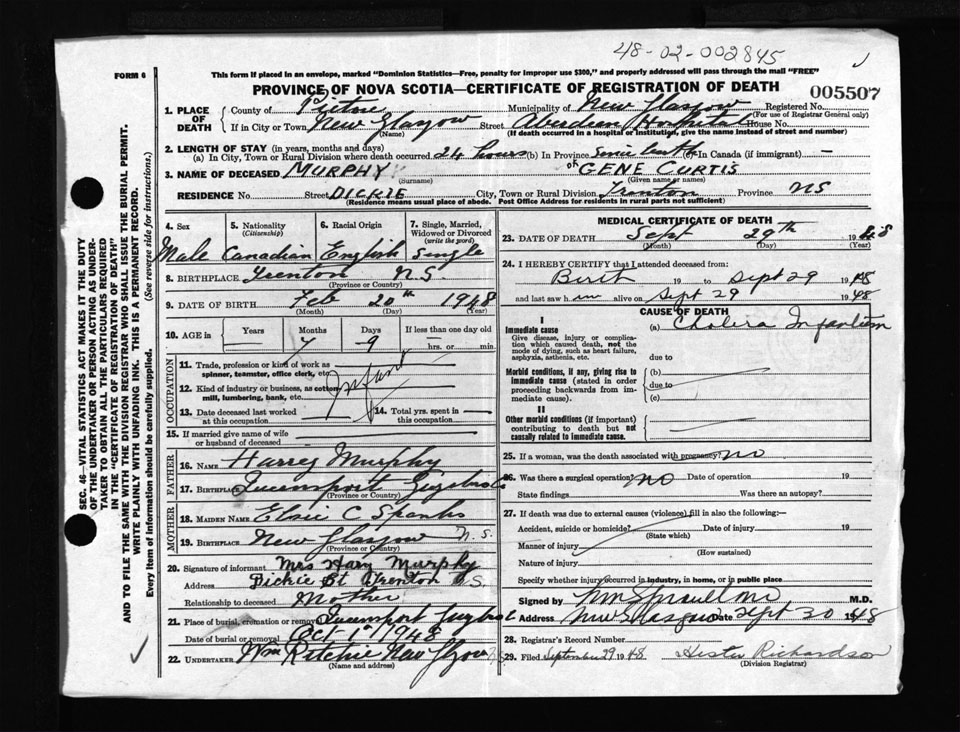 48-02-002845
FORM 6
This form if placed in an envelope, marked "Dominion Statistics—Free, penalty for improper use $300," and properly addressed will pass through the mail "FREE"
PROVINCE OF NOVA SCOTIA—CERTIFICATE OF REGISTRATION OF DEATH
005507
1. PLACE OF DEATH
County of Pictou Municipality of New Glasgow Registered No.
(For use of Registrar General only)
If in City or Town New Glasgow Street Aberdeen Hospital House No.
(Name) (If death occurred in a hospital or institution, give the name instead of street and number)
2. LENGTH OF STAY (in years, months and days)
(a) In City, Town or Rural Division where death occurred 24 hours (b) In Province Since birth (c) In Canada (if immigrant) —
3. NAME OF DECEASED MURPHY GENE CURTIS
(Surname) (Given name or names)
RESIDENCE No. Street DICKIE City, Town or Rural Division Trenton Province NS
(Residence means usual place of abode. Post Office Address for residents in rural parts not sufficient)
4. Sex 5. Nationality (Citizenship) 6. Racial Origin 7. Single, Married, Widowed or Divorced (write the word)
Male Canadian English Single
8. BIRTHPLACE Trenton N.S.
(Province or Country)
9. DATE OF BIRTH Feb 20th 1948
(Month) (Day) (Year)
10. AGE in Years Months Days If less than one day old
— 7 9 hrs. or min.
OCCUPATION
11. Trade, profession or kind of work as spinner, teamster, office clerk, etc.
12. Kind of industry or business, as cotton mill, lumbering, bank, etc.
Infant
13. Date deceased last worked at this occupation 14. Total yrs. spent in this occupation
15. If married give name of wife or husband of deceased
FATHER
16. NAME Harrey Murphy
17. BIRTHPLACE Queensport Guysboro
(Province or Country)
MOTHER
18. MAIDEN NAME Elsie C Spanks
19. BIRTHPLACE New Glasgow N.S.
(Province or Country)
20. Signature of informant Mrs Hary Murphy
Address Dickie St Trenton NS
Relationship to deceased Mother
21. Place of burial, cremation or removal Queensport
Date of burial or removal Oct 1st 1948
22. UNDERTAKER Wm Ritchie New Glasgow NS
(Name and address)
MEDICAL CERTIFICATE OF DEATH
23. DATE OF DEATH Sept 29th 1948
(Month) (Day) (Year)
24. I HEREBY CERTIFY that I attended deceased from:
Birth 19 to Sept 29 1948
and last saw h im alive on Sept 29 1948
CAUSE OF DEATH
I
Immediate cause (a) Cholera Infantum
Give disease, injury or complication which caused death, not the mode of dying, such as heart failure, asphyxia, asthenia, etc.
due to
Morbid conditions, if any, giving rise to immediate cause (stated in order proceeding backwards from immediate cause).
(b)
due to
(c)
II
Other morbid conditions (if important) contributing to death but not causally related to immediate cause.
25. If a woman, was the death associated with pregnancy? no
26. Was there a surgical operation? no Date of operation 19
State findings Was there an autopsy?
27. If death was due to external causes (violence) fill in also the following:—
Accident, suicide or homicide? Date of injury 19
(State which)
Manner of injury
(How sustained)
Nature of injury
Specify whether injury occurred in industry, in home, or in public place
Signed by M.D.
Address New Glasgow Date Sept 30 1948
28. Registrar's Record Number
29. Filed September 29 1948 Hester Richardson
(Division Registrar)
SEC. 46—VITAL STATISTICS ACT MAKES IT THE DUTY
OF THE UNDERTAKER OR PERSON ACTING AS UNDER-
TAKER TO OBTAIN ALL THE PARTICULARS REQUIRED
IN THE "CERTIFICATE OF REGISTRATION OF DEATH"
AND TO FILE THE SAME WITH THE DIVISION REGISTRAR WHO SHALL ISSUE THE BURIAL PERMIT.
WRITE PLAINLY WITH UNFADING INK. THIS IS A PERMANENT RECORD.
Every item of information should be carefully supplied. (See reverse side for instructions.)